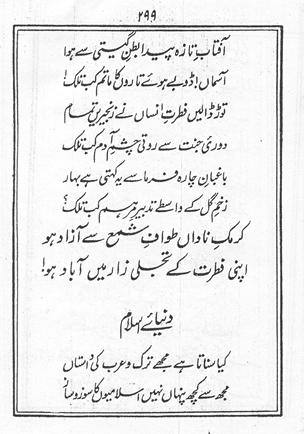 ۲۹۹
آفتابِ تازہ پیدا بطنِ گیتی سے ہوا
آسماں! ڈوبے ہوئے تاروں کا ماتم کب تلک!
توڑ ڈالیں فطرتِ انساں نے زنجیریں تمام
دوریِ جنت سے روتی چشمِ آدم کب تلک
باغبانِ چارہ فرما سے یہ کہتی ہے بہار
زخمِ گل کے واسطے تدبیرِ مرہم کب تلک؟
کرمکِ ناداں طوافِ شمع سے آزاد ہو
اپنی فطرت کے تجلی زار میں آباد ہو!
دنیائے اسلام
کیا سناتا ہے مجھے ترک و عرب کی داستاں
مجھ سے کچھ پنہاں نہیں اسلامیوں کا سوز و ساز